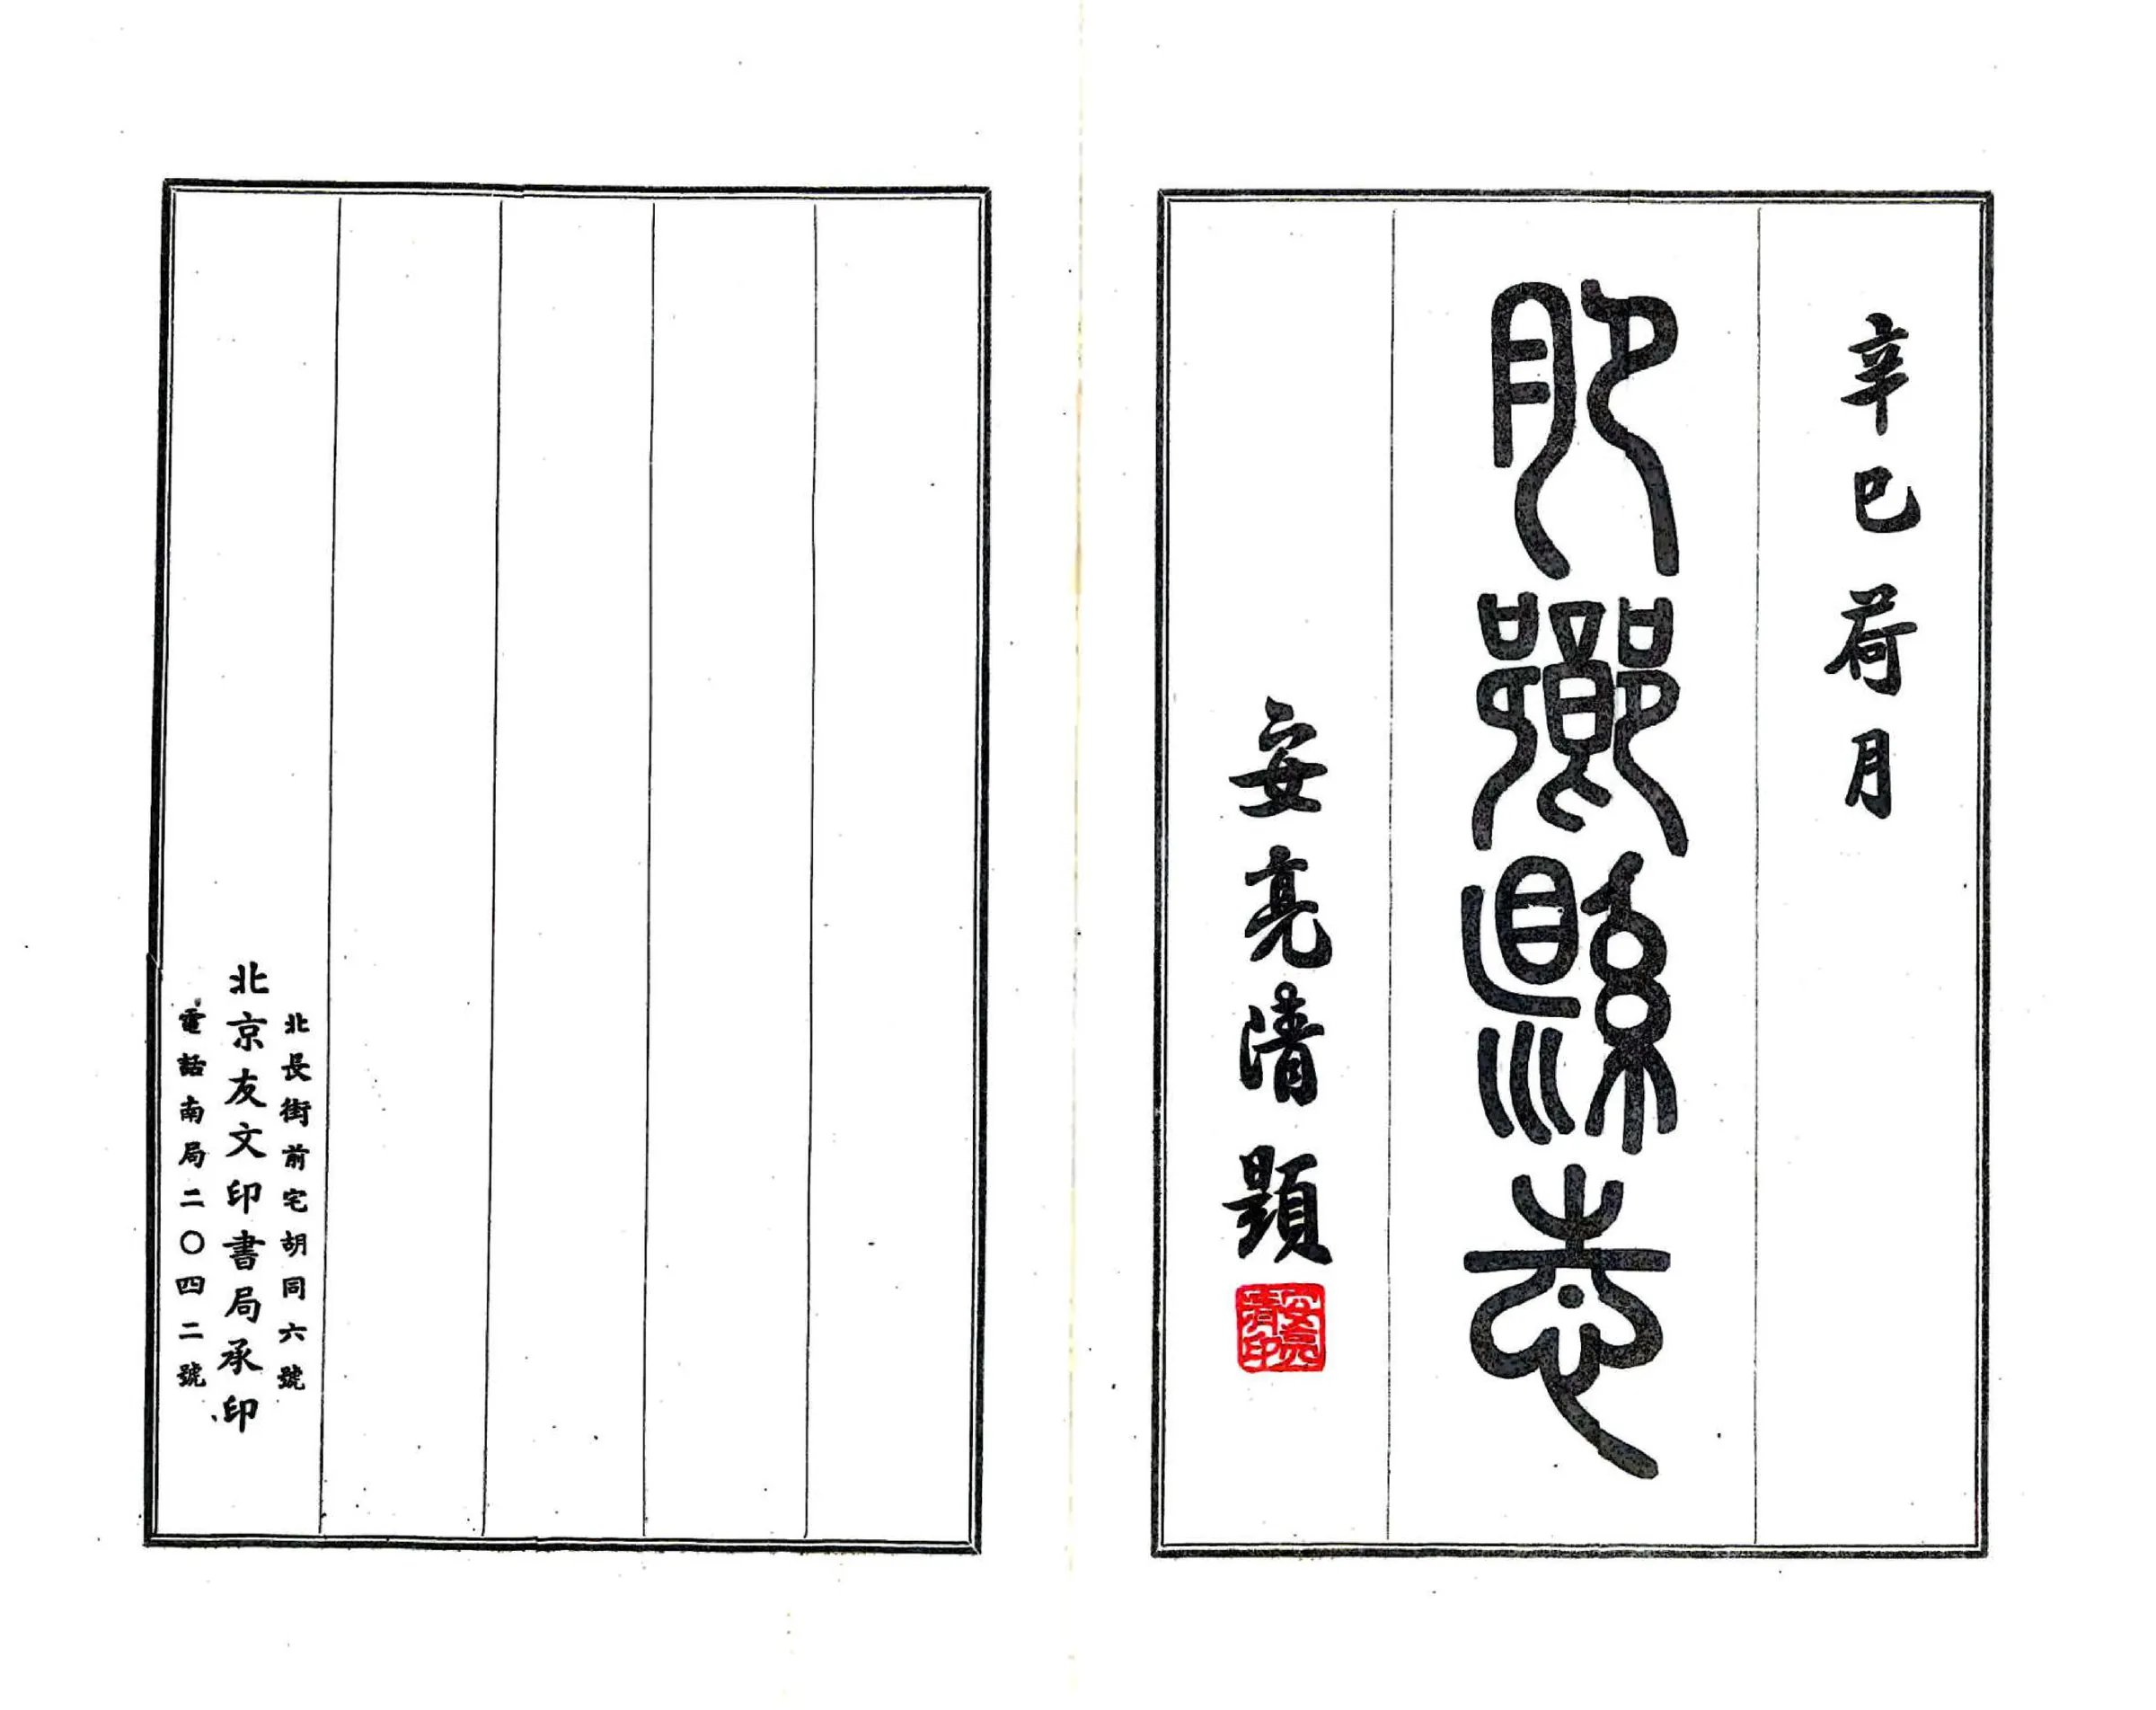 辛巳荷月
肥鄉縣志
安亮清題
安亮清印
北長街前宅胡同六號
北京友文印書局承印
電話南局二〇四二號